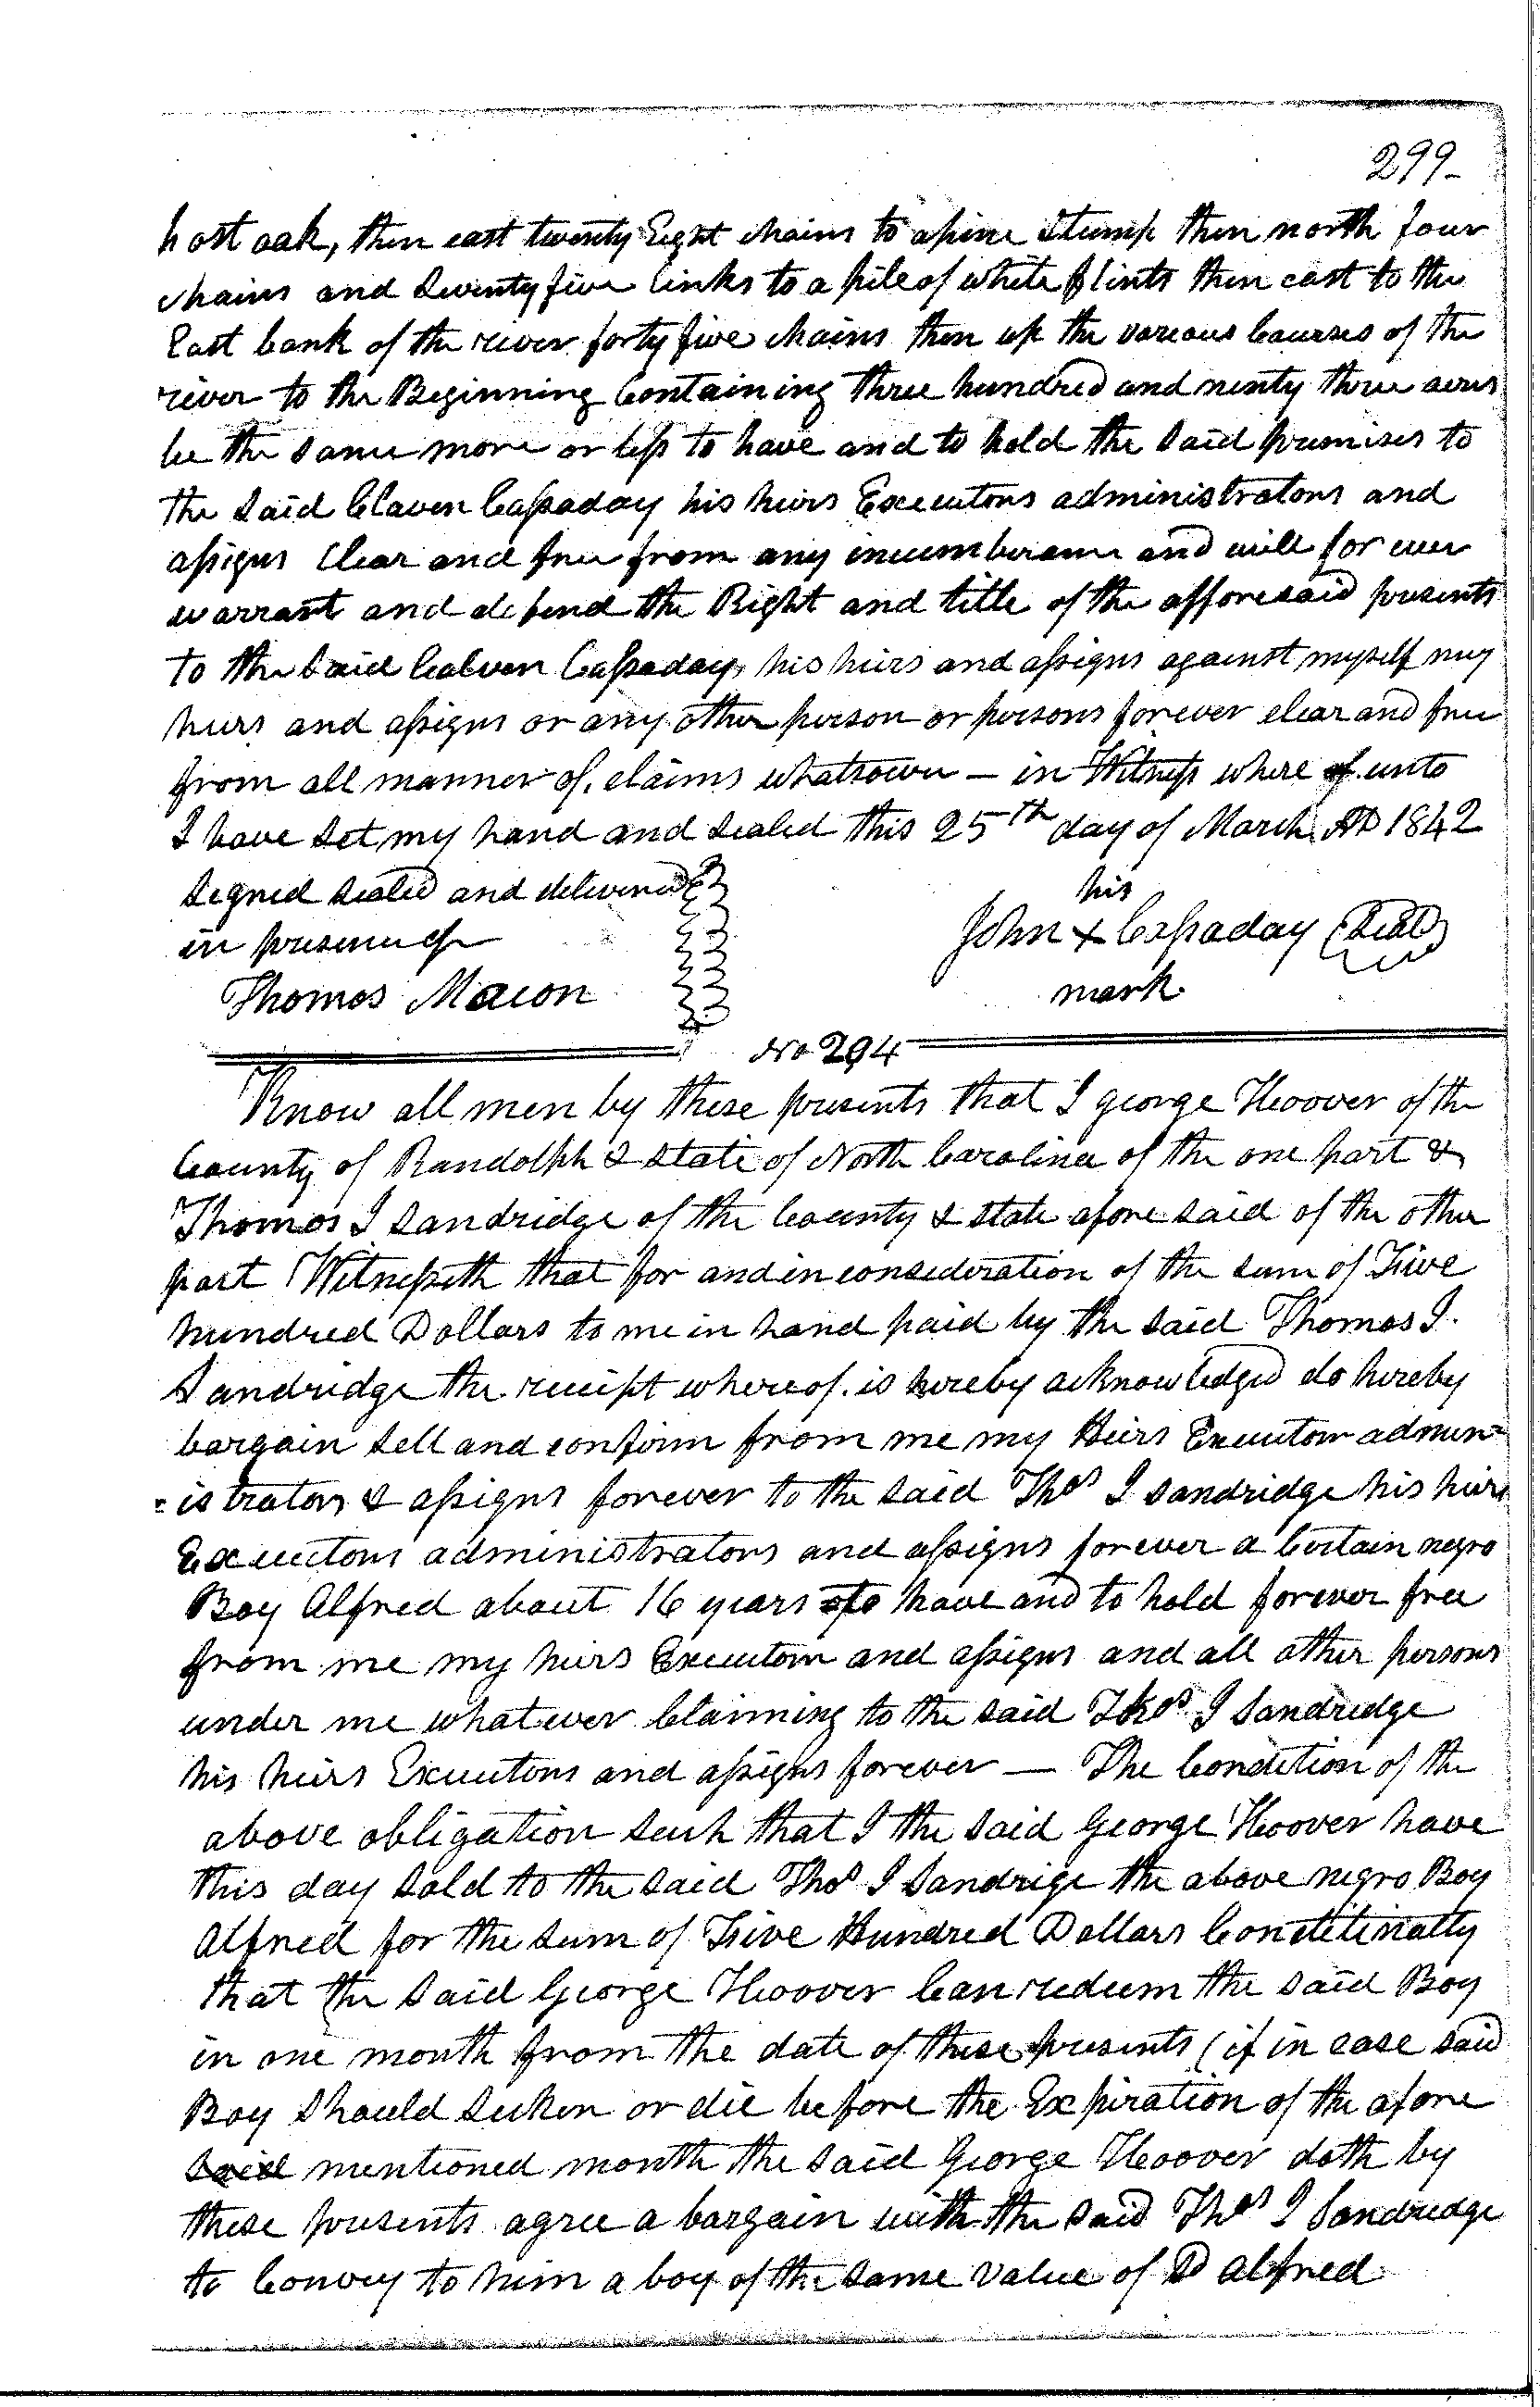 299-
post oak, then east twenty Eight chains to a pine Stump then north four
chains and Seventy five links to a pile of white flints then east to the
East bank of the river forty five chains then up the various Courses of the
river to the Beginning Containing three hundred and ninty three acres
be the same more or less to have and to hold the said premises to
the said Claven Cassaday his heirs Executors administrators and
assigns Clear and free from any incumberance and will for ever
warrant and defend the Right and title of the afforesaid presents
to the said Calven Cassaday, his heirs and assigns against myself my
heirs and assigns or any other person or persons forever clear and free
from all manner of claims whatsoever — in Witness where of unto
I have Set my hand and sealed this 25th day of March AD 1842
Signed sealed and delivered
in presence of
Thomas Macon
his
John x Cassaday (Seal)
mark
No 294
Know all men by these presents that I george Hoover of the
County of Randolph & state of North Carolina of the one part &
Thomas I Sandridge of the County & state afore said of the other
part Witnesseth that for and in consideration of the sum of Five
hundred Dollars to me in hand paid by the said Thomas I.
Sandridge the receipt whereof is hereby acknowledged do hereby
bargain sell and confirm from me my Heirs Executors admin=
=istrators & assigns forever to the said Thos I Sandridge his heirs
Executors administrators and assigns forever a Certain negro
Boy Alfred about 16 years to have and to hold forever free
from me my heirs Executors and assigns and all other persons
under me whatever Claiming to the said Thos I Sandredge
his heirs Executors and assigns forever — The Condition of the
above obligation such that I the said George Hoover have
this day sold to the said Thos I Sandrige the above negro Boy
Alfred for the sum of Five Hundred Dollars Conditinally
that the said George Hoover Can redeem the said Boy
in one month from the date of these presents (if in case said
Boy should sicken or die before the Expiration of the afore
said mentioned month the said George Hoover doth by
these presents agree a bargain with the said Thos I Sandredge
to Convey to him a boy of the same value of Sd Alfred